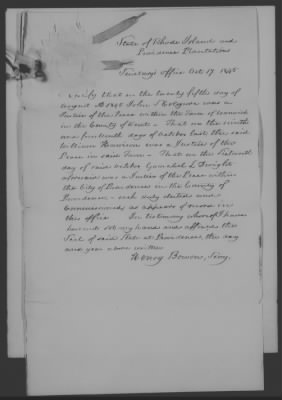 State of Rhode Island and
Providence Plantations
Secretary's Office Oct 17 1845
certify that on the twenty fifth day of
August AD 1845 John was a
Justice of the Peace within the Town of Warwick
in the County of Kent - That on the ninth
and fourteenth day of October last, the said
William Harrison was a Justice of the
Peace in said Town - That on the sixteenth
day of said October L Dwight
aforesaid was a Justice of the Peace within
the City of Providence in the County of
Providence - each duly elected and
Commissioned, as appears of record in
this office In testimony whereof I have
hereunto set my hand and affixed the
Seal of said State at Providence, the day
and year above written
Henry Bowen, Secy.